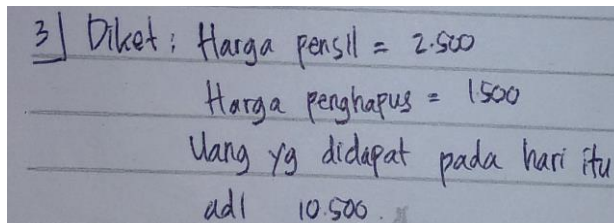 3| Diket : Harga pensil = 2.500
Harga penghapus = 1.500
Uang yg didapat pada hari itu
adl 10.500.